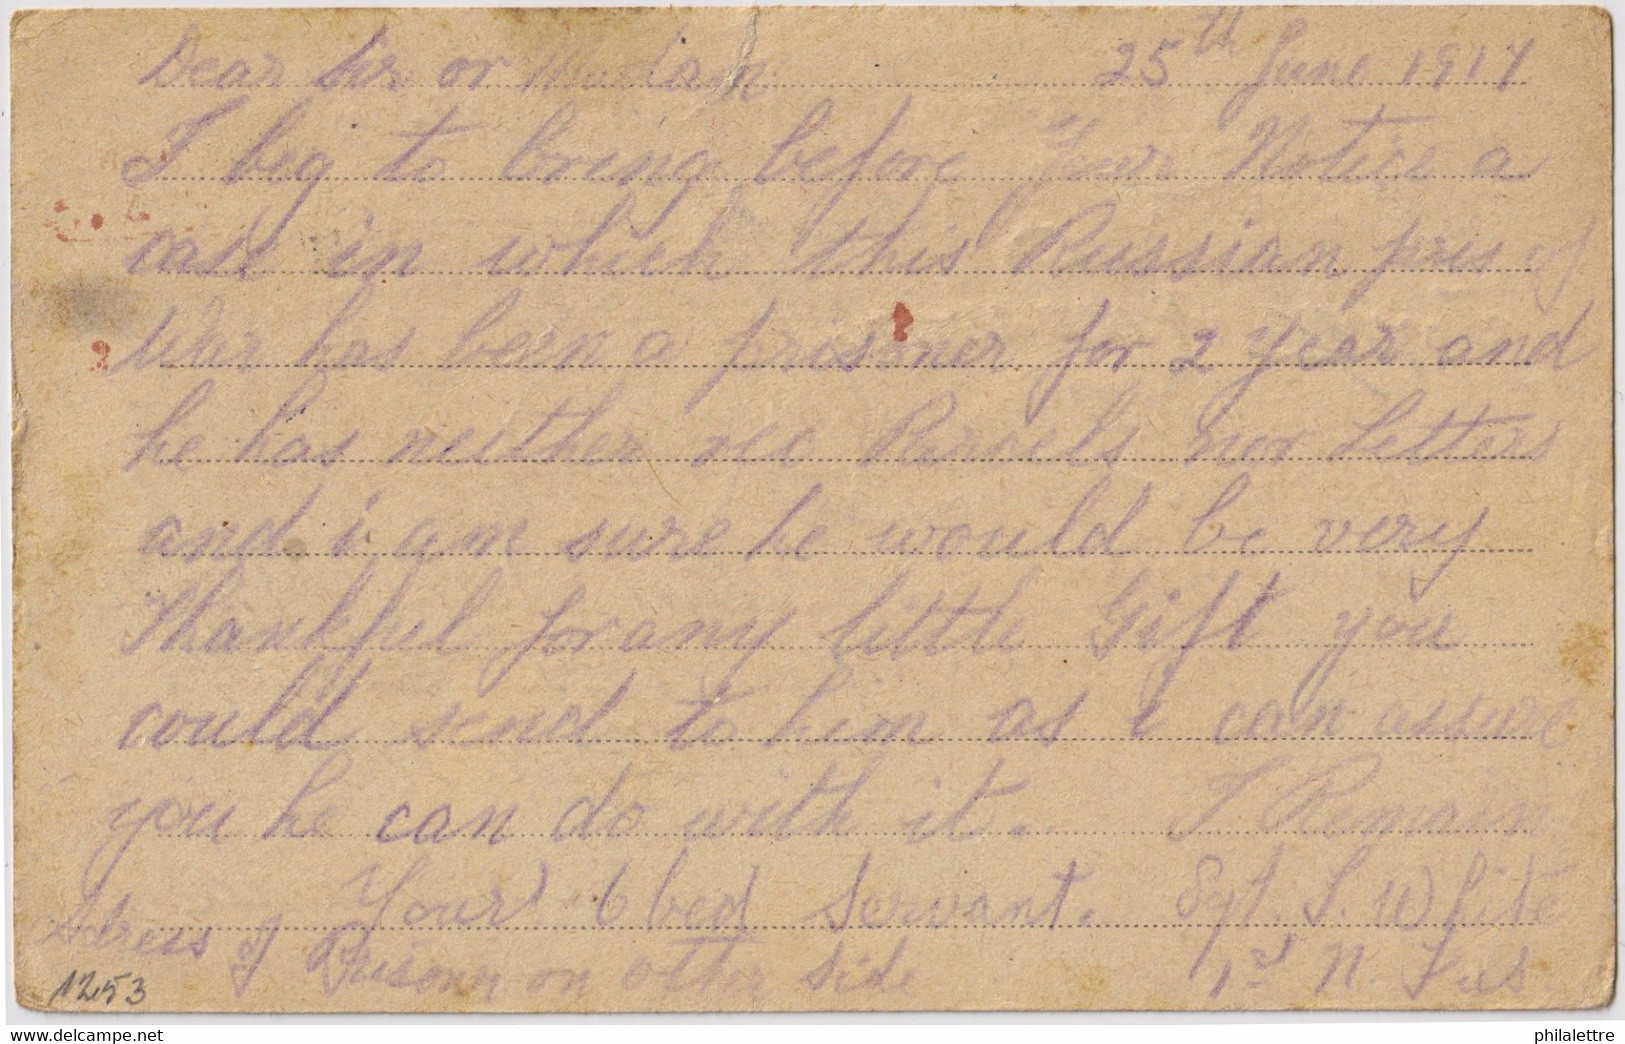 Dear Sir or Madam 25th June 1917
I beg to bring before Your Notice a
case in which this Russian pris of
War has been a prisoner for 2 year and
he has neither rec Parcels nor Letters
and i am sure he would be very
Thankful for any little Gift you
could send to him as i can assure
you he can do with it. I Remain
Your Obed Servant. Sgt. S. White
Adress of Prisoner on other side 1st N. Fus.
1253
delcampe.net
philalettre